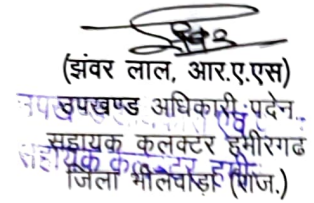 (झंवर लाल, आर.ए.एस)
उपखण्ड अधिकारी पदेन
सहायक कलक्टर हमीरगढ
जिला भीलवाड़ा (राज.)